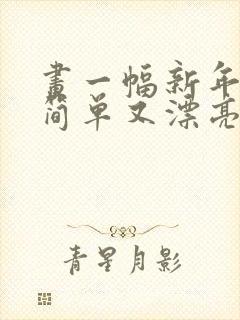 畫一幅新年
简单又漂亮
青星月影